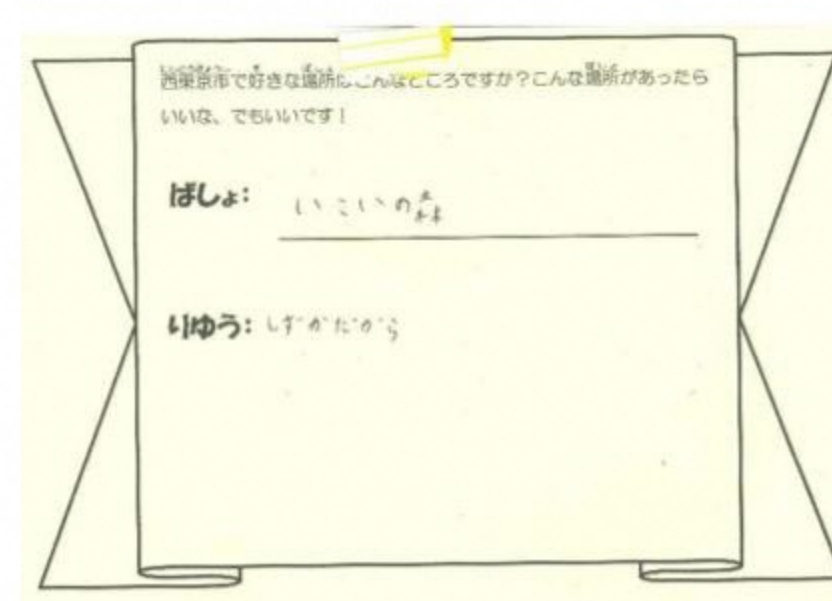 西東京市で好きな場所はどんなところですか？こんな場所があったら
いいな、でもいいです！
ばしょ： いこいの森
りゆう： しずかだから